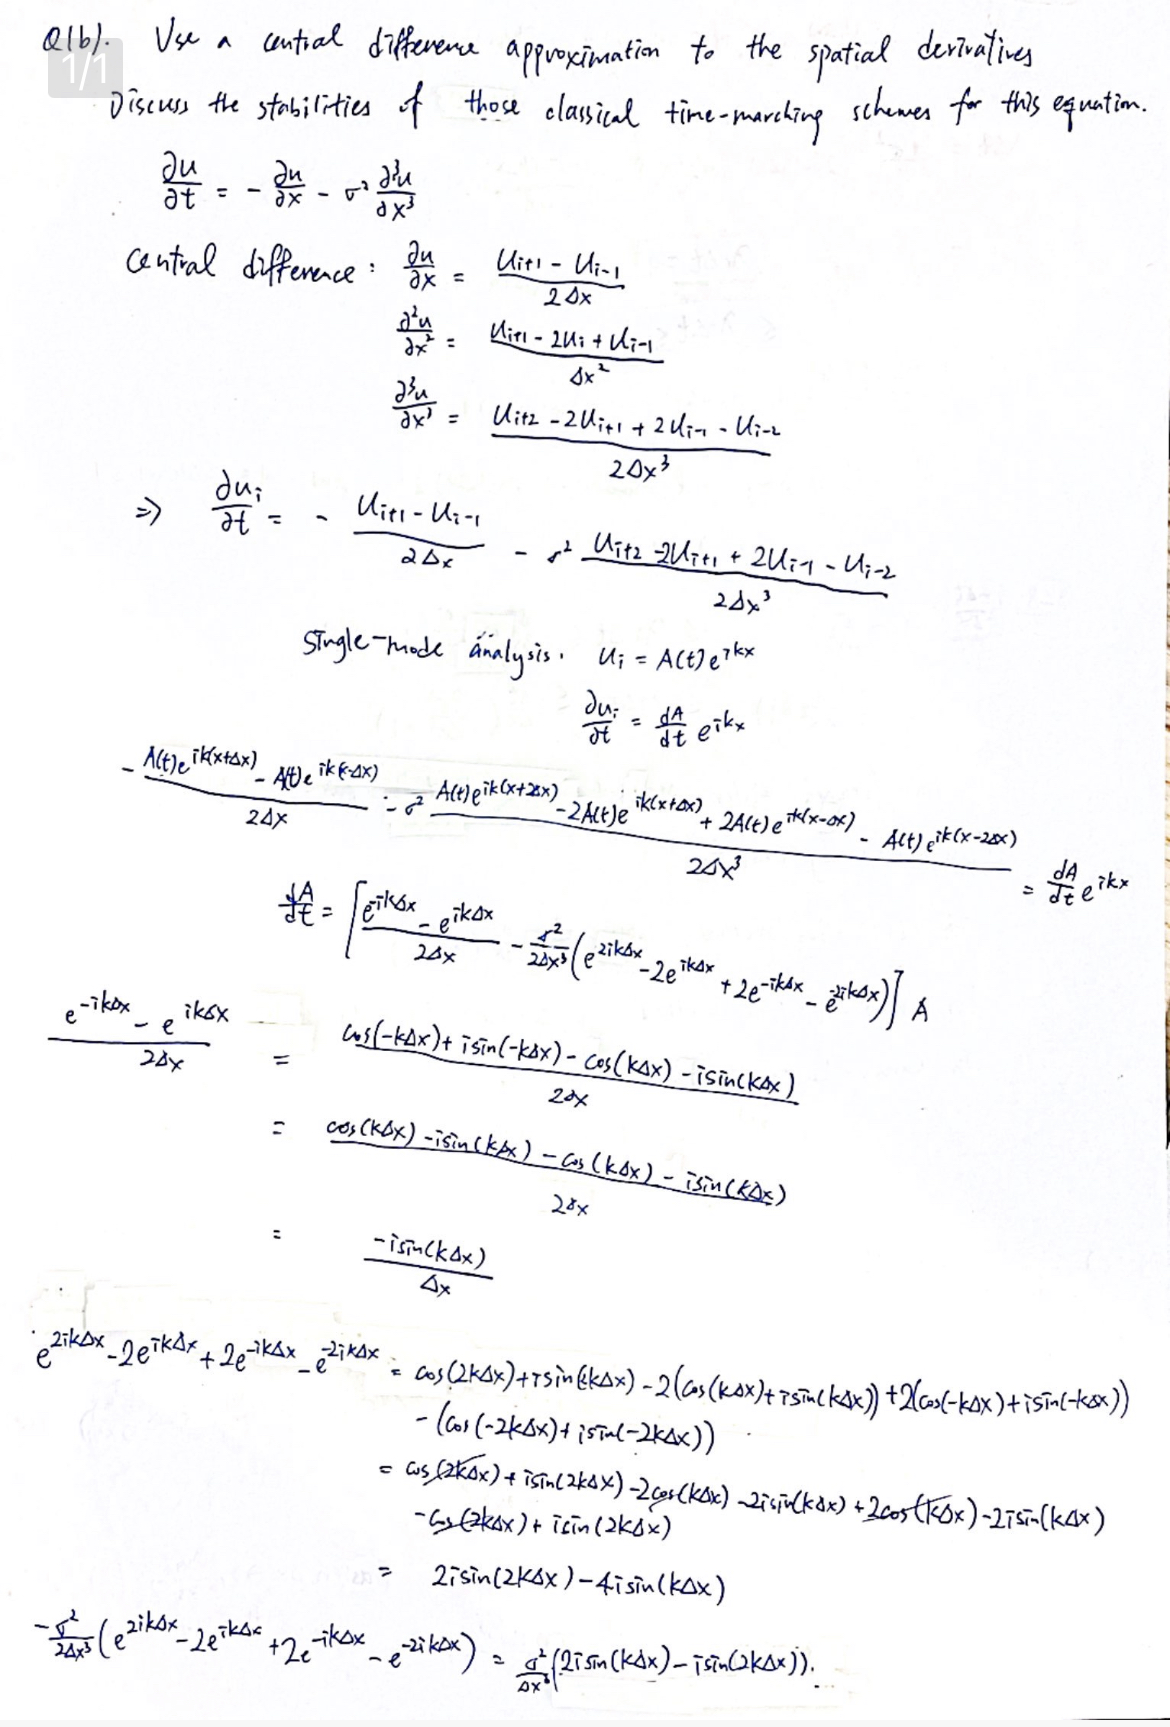 Q1(b). Use a central difference approximation to the spatial derivatives
1/1
Discuss the stabilities of those classical time-marching schemes for this equation.
∂u/∂t = - ∂u/∂x - σ² ∂³u/∂x³
Central difference: ∂u/∂x = (Ui+1 - Ui-1)/(2Δx)
∂²u/∂x² = (Ui+1 - 2Ui + Ui-1)/Δx²
∂³u/∂x³ = (Ui+2 - 2Ui+1 + 2Ui-1 - Ui-2)/(2Δx³)
=> ∂ui/∂t = - (Ui+1 - Ui-1)/(2Δx) - σ² (Ui+2 - 2Ui+1 + 2Ui-1 - Ui-2)/(2Δx³)
Single-mode analysis. Ui = A(t)e^(ikx)
∂ui/∂t = dA/dt e^(ikx)
- (A(t)e^(ik(x+Δx)) - A(t)e^(ik(x-Δx)))/(2Δx) - σ² (A(t)e^(ik(x+2Δx)) - 2A(t)e^(ik(x+Δx)) + 2A(t)e^(ik(x-Δx)) - A(t)e^(ik(x-2Δx)))/(2Δx³) = dA/dt e^(ikx)
dA/dt = [(e^(-ikΔx) - e^(ikΔx))/(2Δx) - σ²/(2Δx³) (e^(2ikΔx) - 2e^(ikΔx) + 2e^(-ikΔx) - e^(-2ikΔx))] A
(e^(-ikΔx) - e^(ikΔx))/(2Δx) = (cos(-kΔx) + isin(-kΔx) - cos(kΔx) - isin(kΔx))/(2Δx)
= (cos(kΔx) - isin(kΔx) - cos(kΔx) - isin(kΔx))/(2Δx)
= (-isin(kΔx))/Δx
e^(2ikΔx) - 2e^(ikΔx) + 2e^(-ikΔx) - e^(-2ikΔx) = cos(2kΔx) + isin(2kΔx) - 2(cos(kΔx) + isin(kΔx)) + 2(cos(-kΔx) + isin(-kΔx))
- (cos(-2kΔx) + isin(-2kΔx))
= cos(2kΔx) + isin(2kΔx) - 2cos(kΔx) - 2isin(kΔx) + 2cos(kΔx) - 2isin(kΔx)
- cos(2kΔx) + isin(2kΔx)
= 2isin(2kΔx) - 4isin(kΔx)
- σ²/(2Δx³) (e^(2ikΔx) - 2e^(ikΔx) + 2e^(-ikΔx) - e^(-2ikΔx)) = σ²/Δx³ (2isin(kΔx) - isin(2kΔx)).